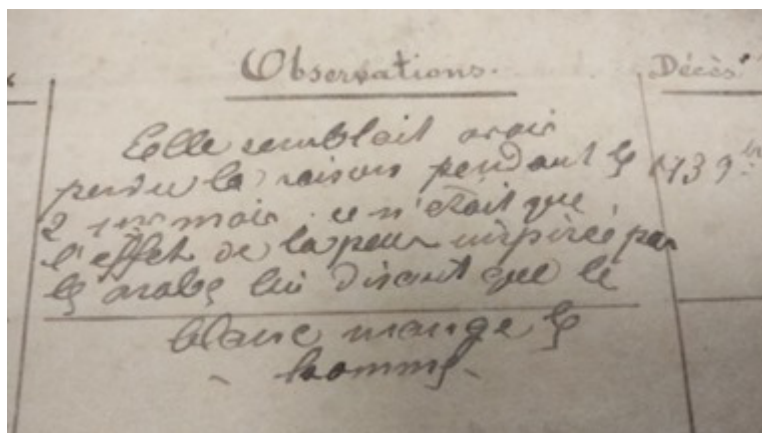 Observations. Décès
Elle semblait avoir
perdu la raison pendant les 1739
2 1ers mois. ce n'était que
l'effet de la peur inspirée par
les arabes lui disant que le
blanc mange les
hommes.